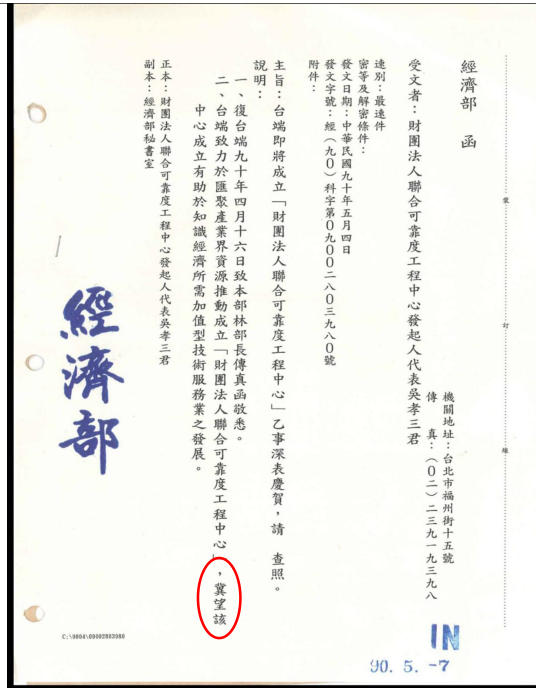 經濟部　函
機關地址：台北市福州街十五號
傳　　真：（０二）二三九一九三九八
受文者：財團法人聯合可靠度工程中心發起人代表吳孝三君
速別：最速件
密等及解密條件：
發文日期：中華民國九十年五月四日
發文字號：經（九０）科字第０九００二八０三九八０號
附件：
主旨：台端即將成立「財團法人聯合可靠度工程中心」乙事深表慶賀，請　查照。
說明：
一、復台端九十年四月十六日致本部林部長傳真函敬悉。
二、台端致力於匯聚產業界資源推動成立「財團法人聯合可靠度工程中心」，冀望該
中心成立有助於知識經濟所需加值型技術服務業之發展。
正本：財團法人聯合可靠度工程中心發起人代表吳孝三君
副本：經濟部秘書室
經濟部
裝
訂
線
C:\9004\09002803980
IN
90. 5. -7